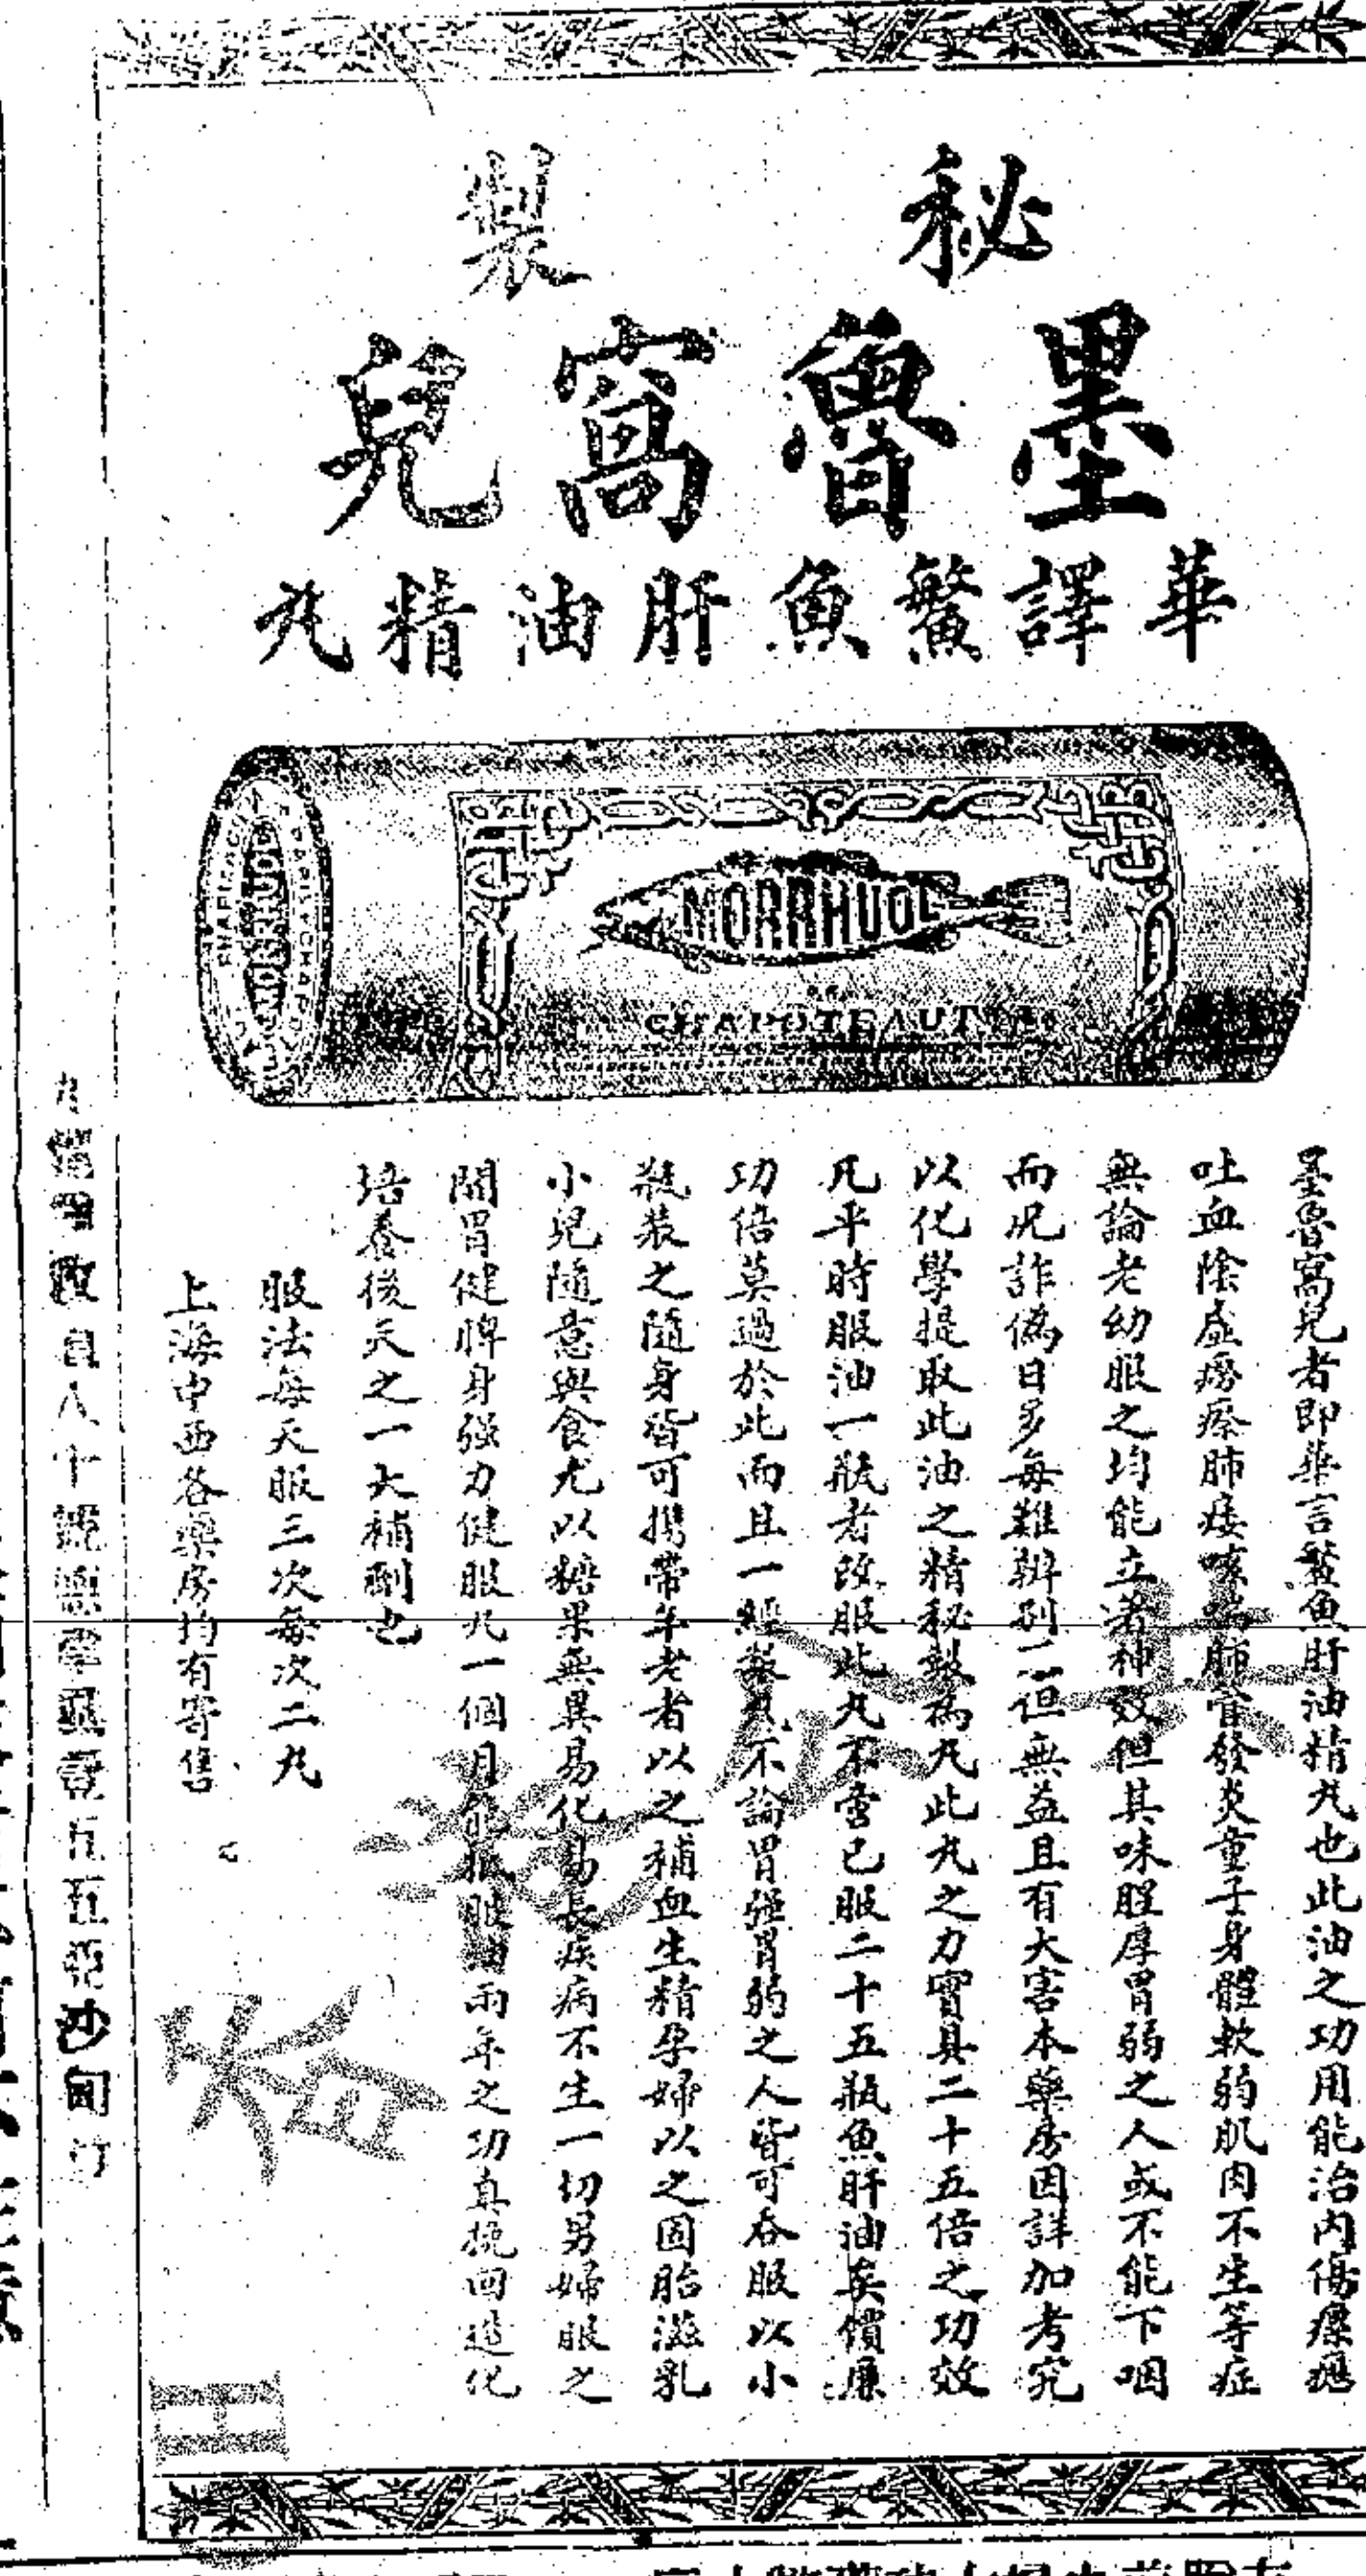 秘製
墨魯窩兒
華譯鰵魚肝油精丸
MORRHUOL
DE
CHAPOTEAUT
MORRHUOL
墨魯窩兒者即華言鰵魚肝油精丸也此油之功用能治內傷瘰癧
吐血陰虛癆瘵肺痿咳嗽肺管發炎童子身體軟弱肌肉不生等症
無論老幼服之均能立著神效但其味腥厚胃弱之人或不能下咽
而况詐偽日多每難辨別不但無益且有大害本藥房因詳加考究
以化學提取此油之精秘製為丸此丸之力實具二十五倍之功效
凡平時服油一瓶者改服此丸不啻已服二十五瓶魚肝油矣價廉
功倍莫過於此而且一經製丸不論胃強胃弱之人皆可吞服以小
瓶装之隨身皆可攜帶年老者以之補血生精孕婦以之固胎滋乳
小兒隨意與食尤以糖果無異易化易長疾病不生一切男婦服之
開胃健脾身强力健服丸一個月能抵服油兩年之功真挽回造化
培養後天之一大補劑也
服法每天服三次每次二丸
上海中西各藥房均有寄售